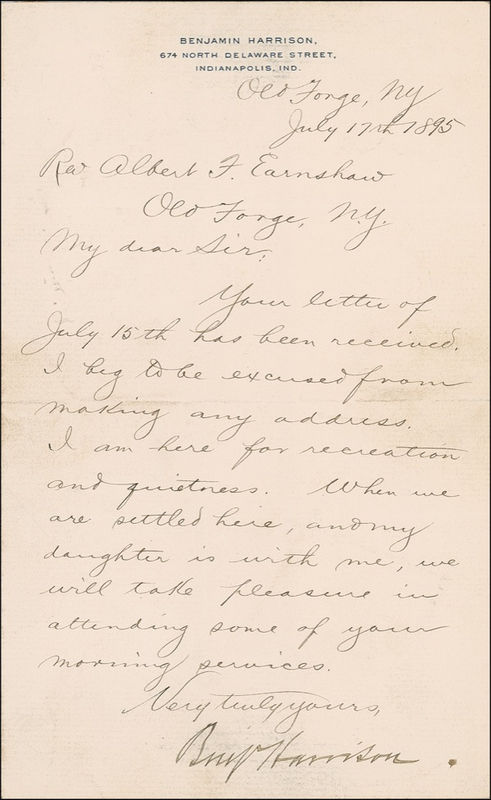 BENJAMIN HARRISON,
674 NORTH DELAWARE STREET,
INDIANAPOLIS, IND.
Old Forge, NY
July 17th 1895
Rev Albert F. Earnshaw
Old Forge, N.Y.
My dear Sir:
Your letter of
July 15th has been received.
I beg to be excused from
making any address.
I am here for recreation
and quietness. When we
are settled here, and my
daughter is with me, we
will take pleasure in
attending some of your
morning services.
Very truly yours,
Benj Harrison